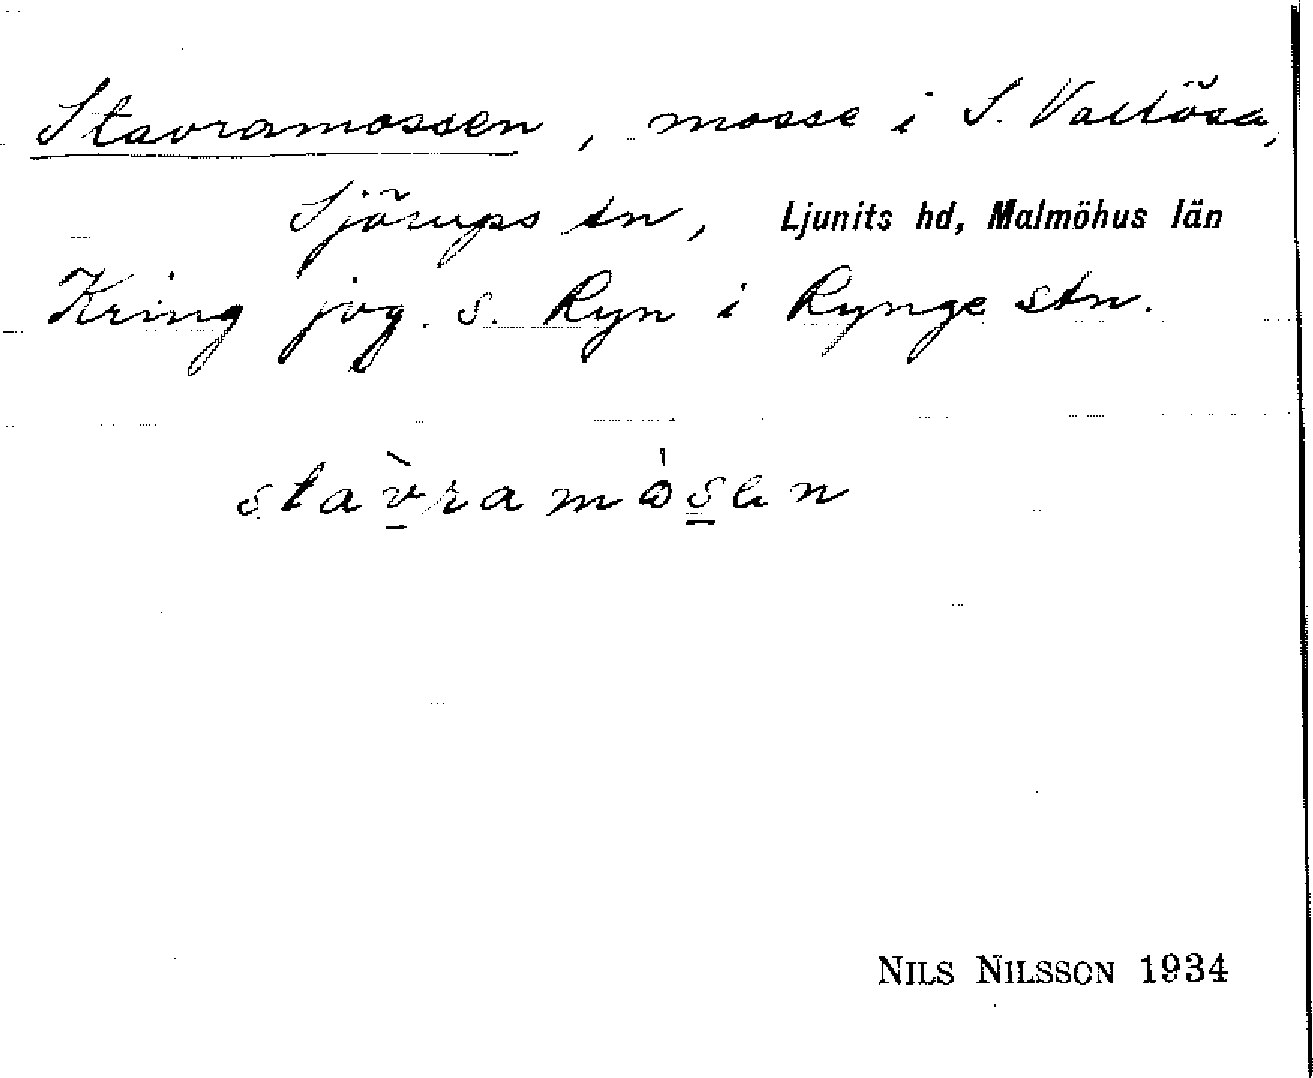 Stavramossen, mosse i S. Vallösa,
Sjörups sn, Ljunits hd, Malmöhus län
Kring jvg. s. Ryn i Rynge stn.
stàv̲ramós̲en
NILS NILSSON 1934